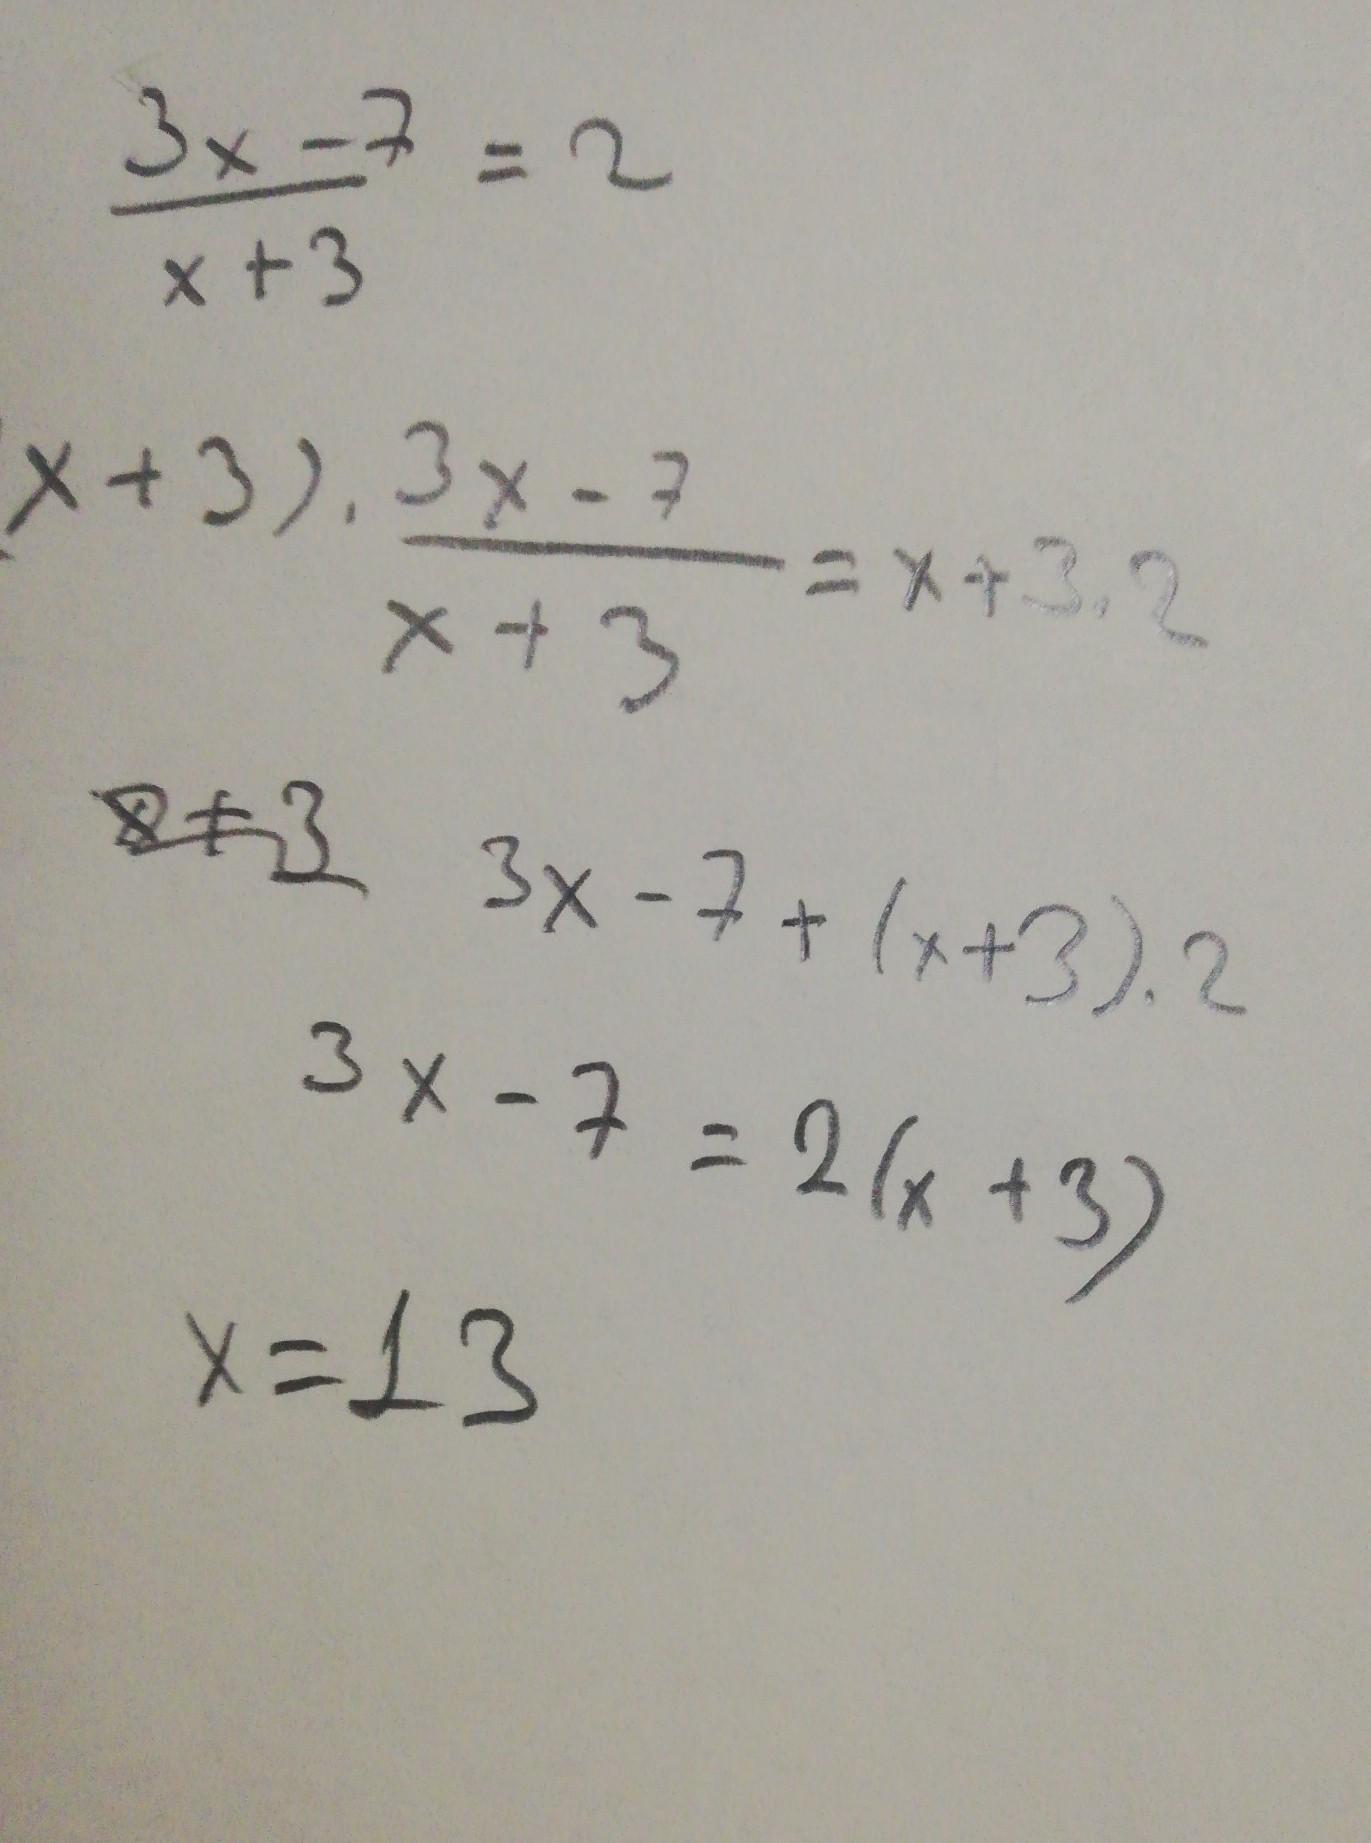 3x - 7 = 2
x + 3
(x + 3) . 3x - 7 = x + 3 . 2
x + 3
3x - 7 + (x + 3) . 2
3x - 7 = 2(x + 3)
x = 13